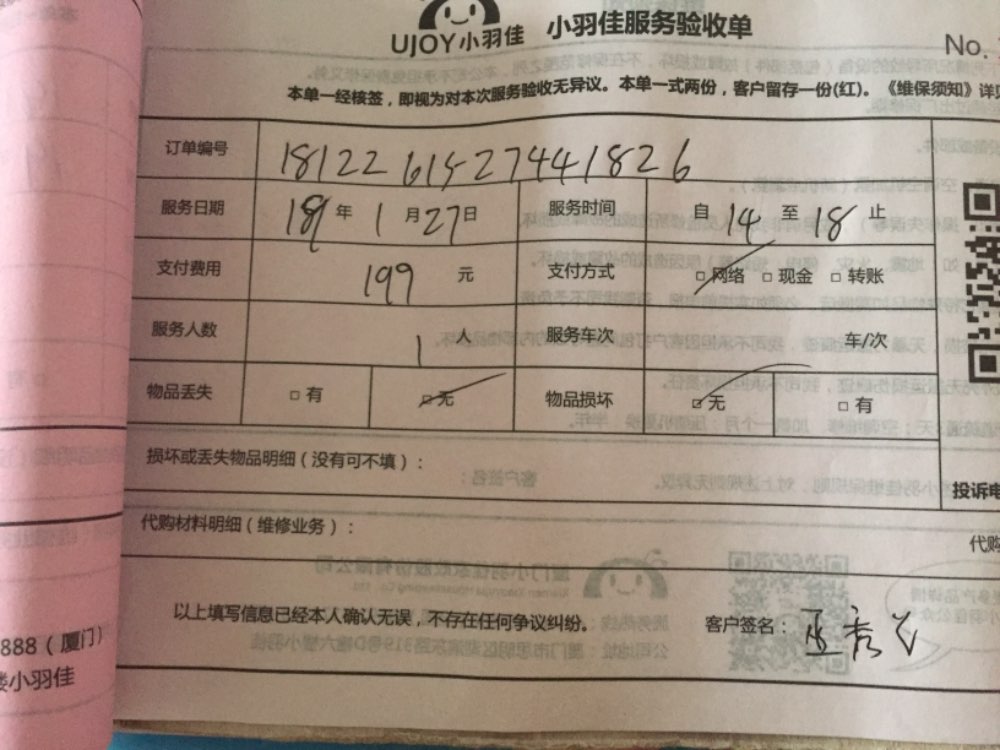 UJOY小羽佳 小羽佳服务验收单
No.
本单一经核签，即视为对本次服务验收无异议。本单一式两份，客户留存一份(红)。《维保须知》详见
订单编号 181226152744 1826
服务日期 19年1月27日 服务时间 自14至18止
支付费用 199元 支付方式 □网络 □现金 □转账
服务人数 1人 服务车次 车/次
物品丢失 □有 □无 物品损坏 □无 □有
损坏或丢失物品明细(没有可不填)：
投诉电
代购材料明细(维修业务)：
代购
以上填写信息已经本人确认无误，不存在任何争议纠纷。 客户签名：
888（厦门）
楼小羽佳